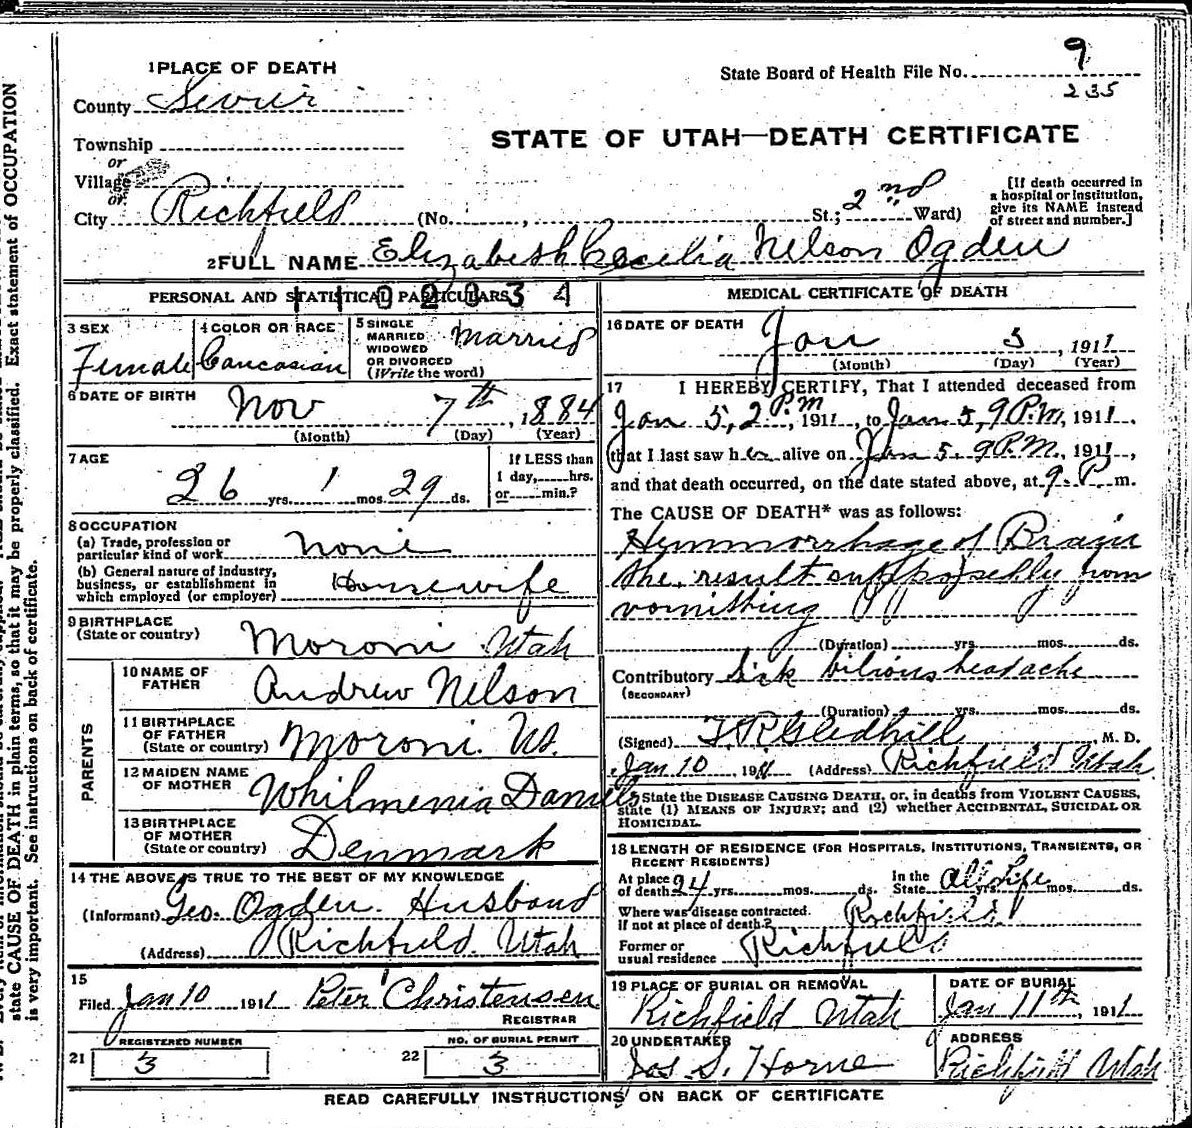 1 PLACE OF DEATH
State Board of Health File No. 9
235
County Sevier
STATE OF UTAH—DEATH CERTIFICATE
Township
or
Village
or
City Richfield (No. , St.; 2nd Ward)
[If death occurred in a hospital or institution, give its NAME instead of street and number.]
2 FULL NAME Elizabeth Cecilia Nelson Ogden
PERSONAL AND STATISTICAL PARTICULARS
1102034
3 SEX
Female
4 COLOR OR RACE
Caucasian
5 SINGLE
MARRIED
WIDOWED
OR DIVORCED
(Write the word)
Married
6 DATE OF BIRTH
Nov 7th, 1884
(Month) (Day) (Year)
7 AGE
26 yrs. 1 mos. 29 ds.
If LESS than
1 day, hrs.
or min.?
8 OCCUPATION
(a) Trade, profession or
particular kind of work None
(b) General nature of industry,
business, or establishment in
which employed (or employer) Housewife
9 BIRTHPLACE
(State or country)
Moroni Utah
PARENTS
10 NAME OF
FATHER Andrew Nelson
11 BIRTHPLACE
OF FATHER
(State or country) Moroni. Ut.
12 MAIDEN NAME
OF MOTHER Whilmenia Daniels
13 BIRTHPLACE
OF MOTHER
(State or country) Denmark
14 THE ABOVE IS TRUE TO THE BEST OF MY KNOWLEDGE
(Informant) Geo. Ogden. Husband
(Address) Richfield. Utah
15
Filed Jan 10 1911 Peter Christensen
REGISTRAR
REGISTERED NUMBER
21 3
NO. OF BURIAL PERMIT
22 3
MEDICAL CERTIFICATE OF DEATH
16 DATE OF DEATH
Jan 5, 1911
(Month) (Day) (Year)
17 I HEREBY CERTIFY, That I attended deceased from
Jan 5, 2 P.M, 1911, to Jan 5, 9 P.M, 1911,
that I last saw her alive on Jan 5. 9 P.M., 1911,
and that death occurred, on the date stated above, at 9. P. m.
The CAUSE OF DEATH* was as follows:
Hemmorrhage of Brain
the result supposedly from
vomithing
(Duration) yrs. mos. ds.
Contributory Sick bilious headache
(SECONDARY)
(Duration) yrs. mos. ds.
(Signed) T. R. Gledhill M. D.
Jan 10 1911 (Address) Richfield Utah
* State the DISEASE CAUSING DEATH, or, in deaths from VIOLENT CAUSES,
state (1) MEANS OF INJURY; and (2) whether ACCIDENTAL, SUICIDAL OR
HOMICIDAL.
18 LENGTH OF RESIDENCE (FOR HOSPITALS, INSTITUTIONS, TRANSIENTS, OR
RECENT RESIDENTS)
At place
of death 24 yrs. mos. ds.
In the
State All Life yrs. mos. ds.
Where was disease contracted.
If not at place of death? Richfield.
Former or
usual residence Richfield
19 PLACE OF BURIAL OR REMOVAL
Richfield Utah
DATE OF BURIAL
Jan 11th, 1911
20 UNDERTAKER
Jos S. Horne
ADDRESS
Richfield Utah
READ CAREFULLY INSTRUCTIONS ON BACK OF CERTIFICATE
state CAUSE OF DEATH in plain terms, so that it may be properly classified. Exact statement of OCCUPATION
is very important. See instructions on back of certificate.